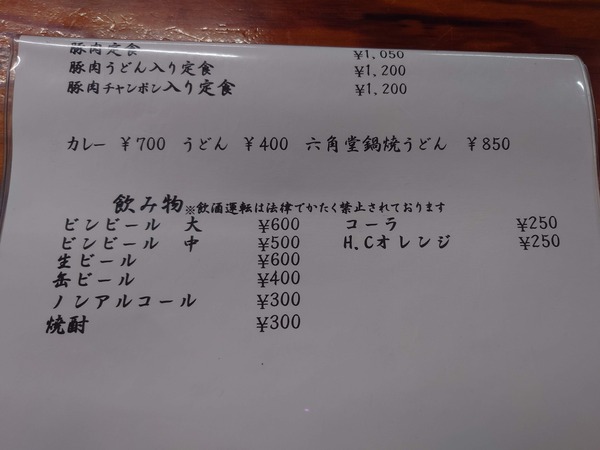 豚肉定食 ¥1,050
豚肉うどん入り定食 ¥1,200
豚肉チャンポン入り定食 ¥1,200
カレー ¥700 うどん ¥400 六角堂鍋焼うどん ¥850
飲み物※飲酒運転は法律でかたく禁止されております
ビンビール 大 ¥600 コーラ ¥250
ビンビール 中 ¥500 H.Cオレンジ ¥250
生ビール ¥600
缶ビール ¥400
ノンアルコール ¥300
焼酎 ¥300